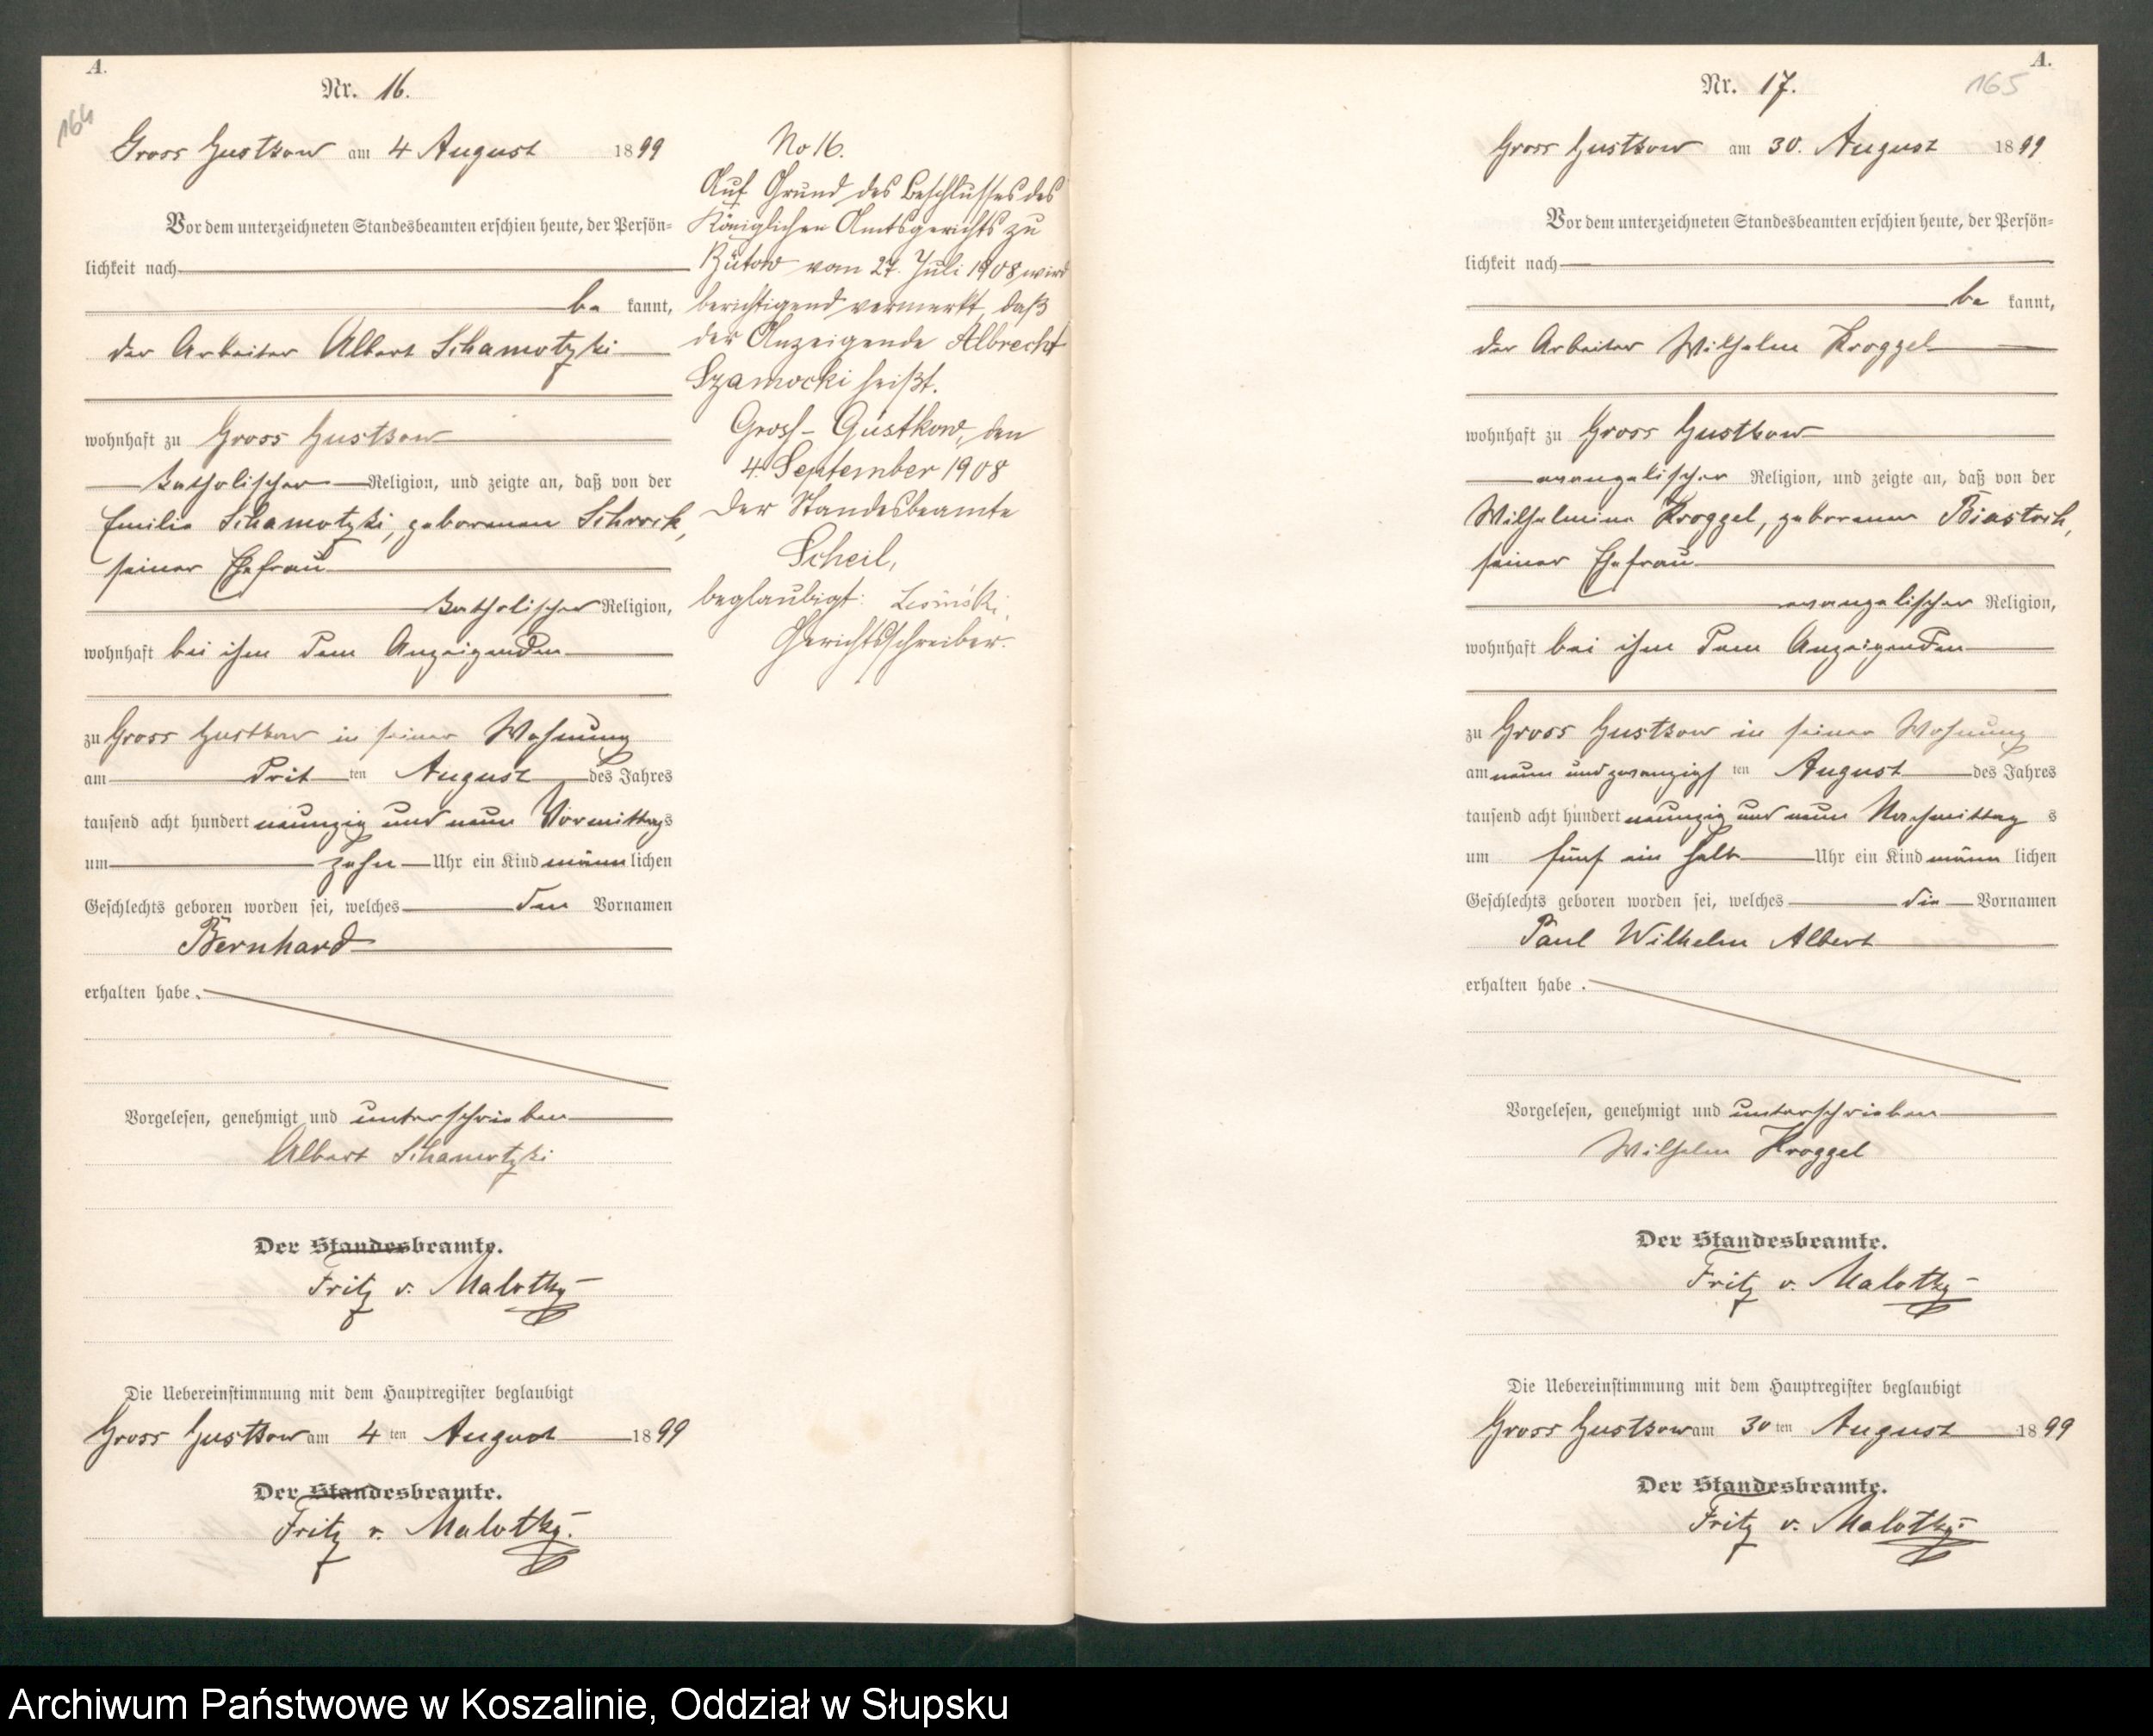 A.
164
Nr. 16.
Gross Gustkow am 4 August 1899
Vor dem unterzeichneten Standesbeamten erschien heute, der Persön-
lichkeit nach
be kannt,
der Arbeiter Albert Schamotzki
wohnhaft zu Gross Gustkow
katholischer Religion, und zeigte an, daß von der
Emilie Schamotzki, geborenen Schrock,
seiner Ehefrau
katholischer Religion,
wohnhaft bei ihm dem Anzeigenden
zu Gross Gustkow in seiner Wohnung
am drit ten August des Jahres
tausend acht hundert neunzig und neun Vormittags
um zehn Uhr ein Kind männlichen
Geschlechts geboren worden sei, welches den Vornamen
Bernhard
erhalten habe.
Vorgelesen, genehmigt und unterschrieben
Albert Schamotzki
Der Standesbeamte.
Fritz v. Malotky
Die Uebereinstimmung mit dem Hauptregister beglaubigt
Gross Gustkow am 4 ten August 1899
Der Standesbeamte.
Fritz v. Malotky.
No 16.
Auf Grund des Beschlusses des
Königlichen Amtsgerichts zu
Bütow vom 27. Juli 1908 wird
berichtigend vermerkt, daß
der Anzeigende Albrecht
Szamocki heißt.
Gross-Gustkow, den
4. September 1908
Der Standesbeamte
Scheil,
beglaubigt:
Gerichtsschreiber.
A.
165
Nr. 17.
Gross Gustkow am 30. August 1899
Vor dem unterzeichneten Standesbeamten erschien heute, der Persön-
lichkeit nach
be kannt,
der Arbeiter Wilhelm Kroggel
wohnhaft zu Gross Gustkow
evangelischer Religion, und zeigte an, daß von der
Wilhelmine Kroggel, geborenen Biastoch,
seiner Ehefrau
evangelischer Religion,
wohnhaft bei ihm dem Anzeigenden
zu Gross Gustkow in seiner Wohnung
am neun und zwanzigs ten August des Jahres
tausend acht hundert neunzig und neun Nachmittag s
um fünf ein halb Uhr ein Kind männ lichen
Geschlechts geboren worden sei, welches die Vornamen
Paul Wilhelm Albert
erhalten habe.
Vorgelesen, genehmigt und unterschrieben
Wilhelm Kroggel
Der Standesbeamte.
Fritz v. Malotky
Die Uebereinstimmung mit dem Hauptregister beglaubigt
Gross Gustkow am 30 ten August 1899
Der Standesbeamte.
Fritz v. Malotky.
Archiwum Państwowe w Koszalinie, Oddział w Słupsku